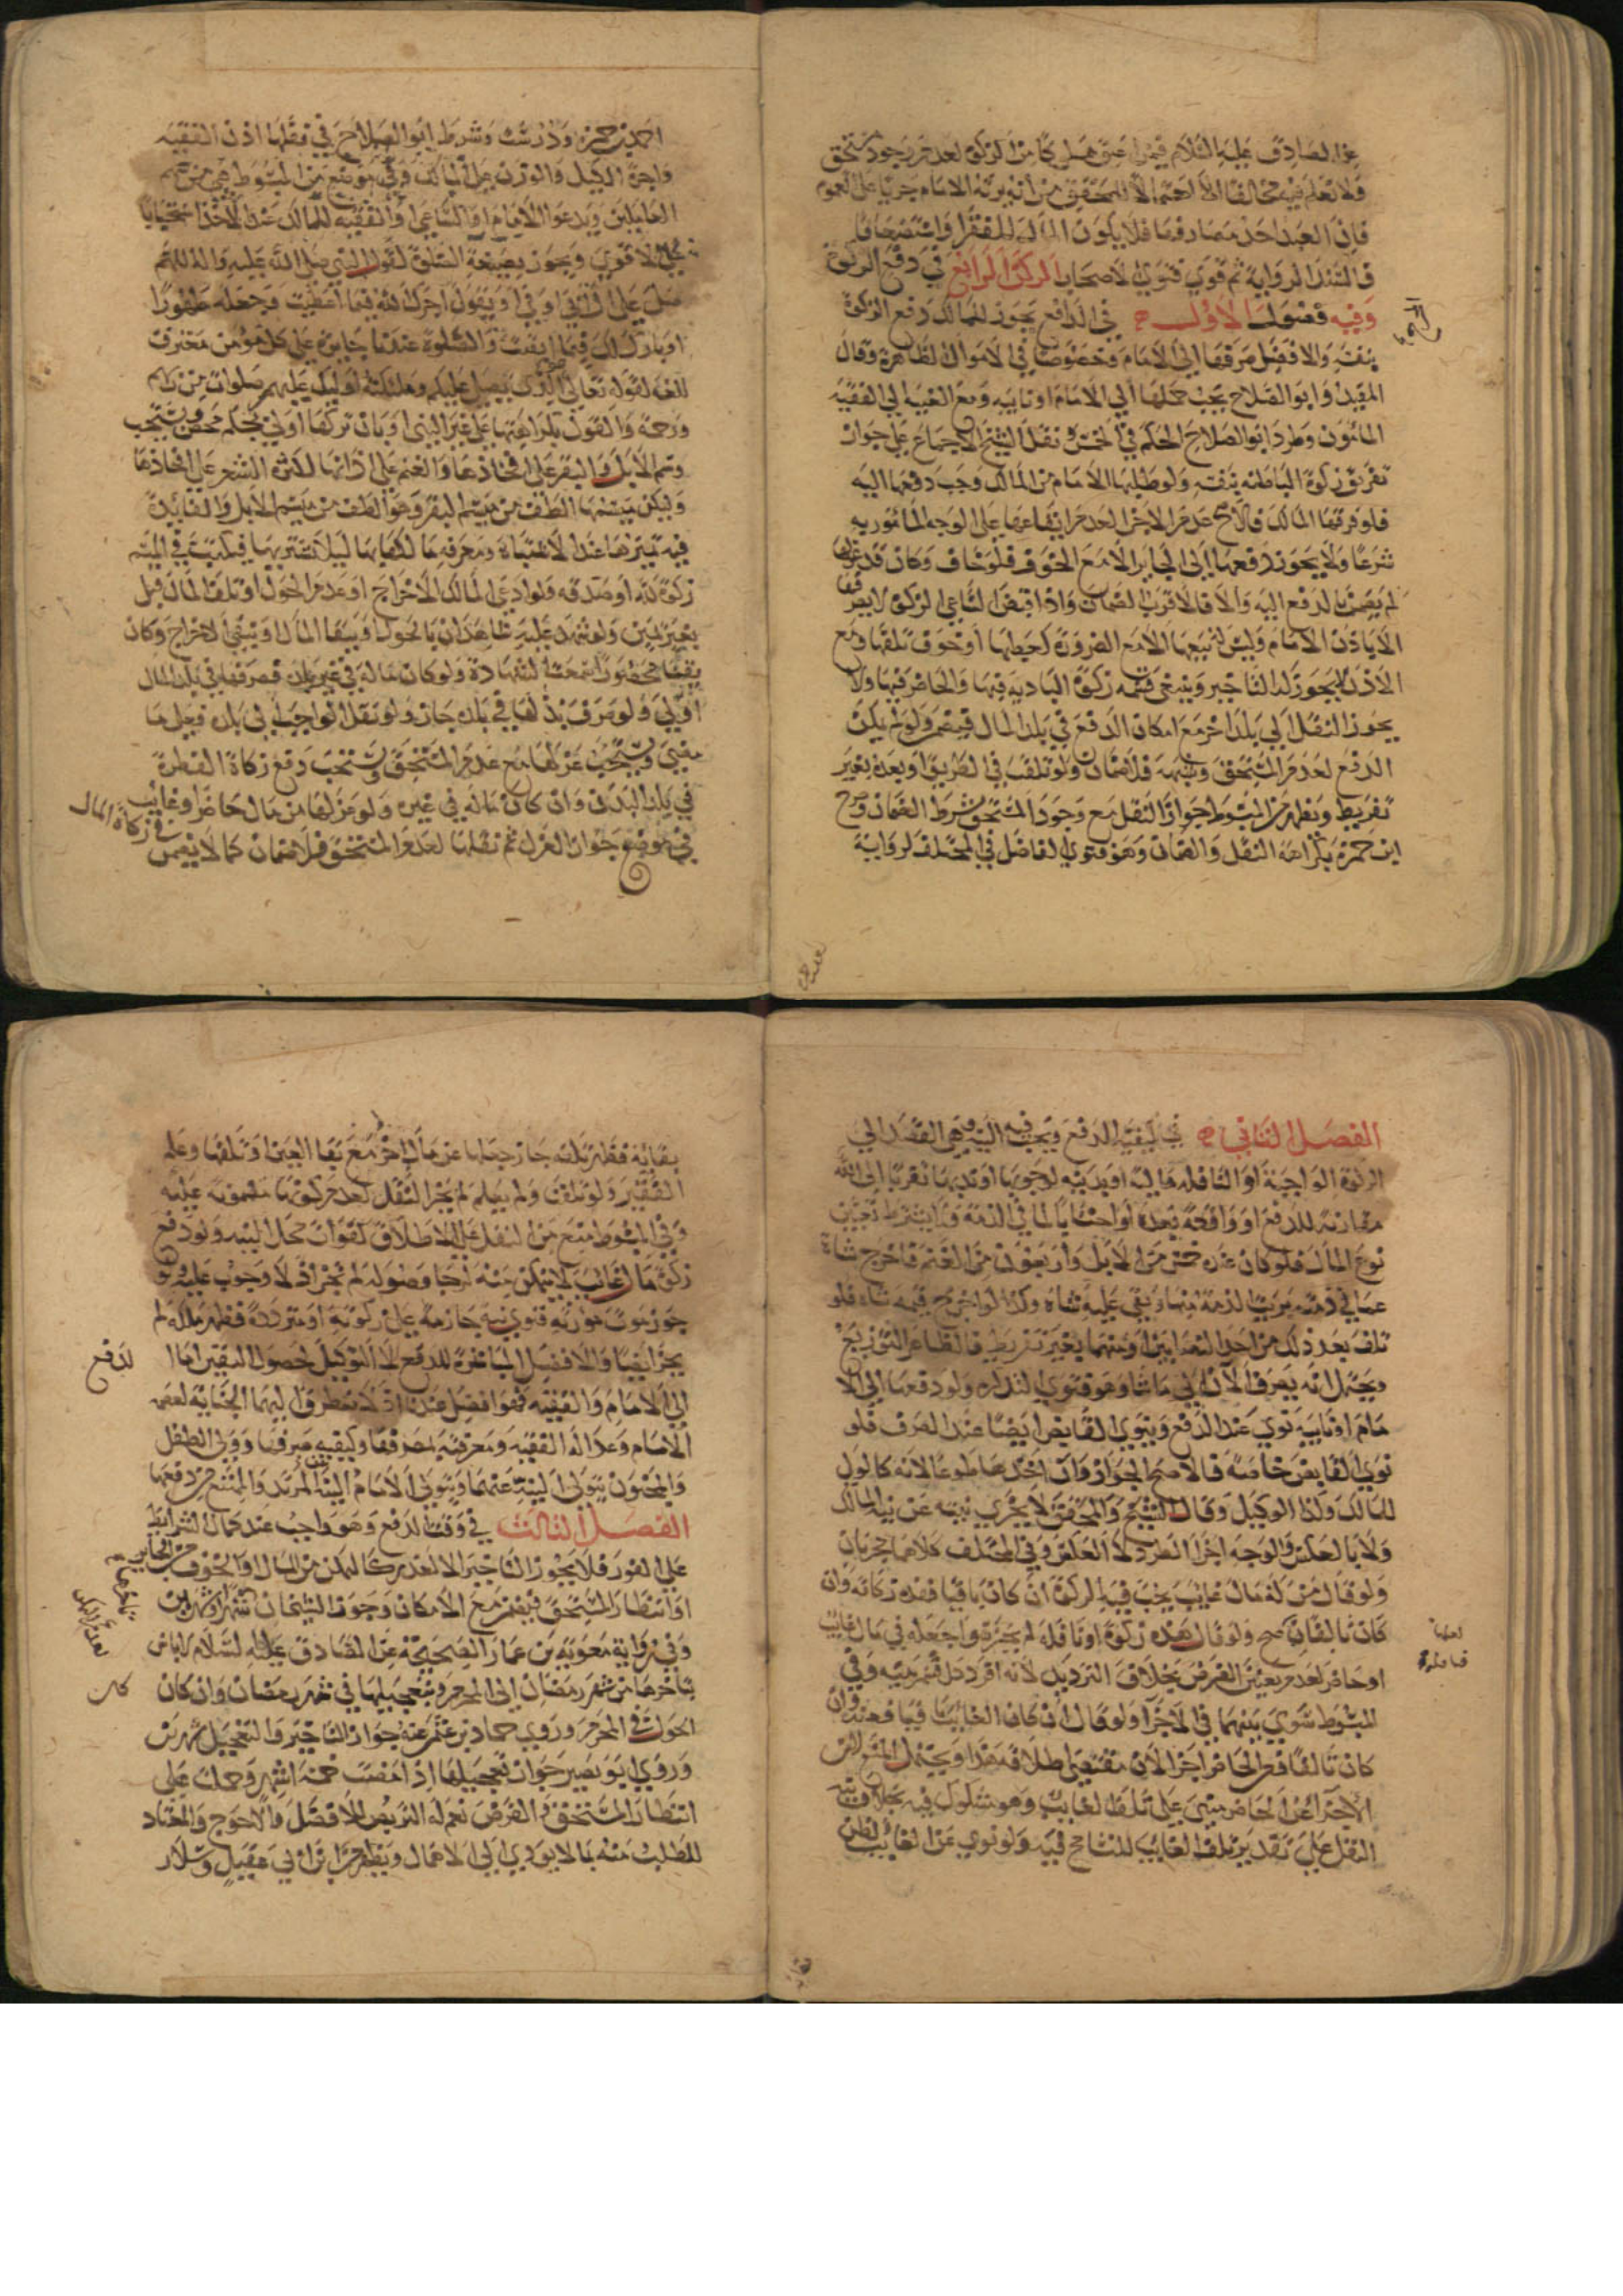 عن الصادق عليه السلام فيمن اعتق مملوكا من الزكوة لعدم وجود مستحق
ولا نعلم فيه مخالفا الا احتمالا للمحقق من انه يرثه الامام جريا على العموم
فان العبد احد مصارفها فلا يكون المال للفقراء واستضعافا
في السند الرواية ثم قوى فتوى الاصحاب الركن الرابع في دفع الزكوة
وفيه فصول الاول في الدافع يجوز للمالك دفع الزكوة
بنفسه والافضل صرفها الى الامام وخصوصا في الاموال الظاهرة وقال
المفيد وابو الصلاح يجب حملها الى الامام او نايبه ومع الغيبة الى الفقيه
المأمون وطرد ابو الصلاح الحكم في الخمس نقل الشيخ الاجماع على جواز
تفريق زكوة الباطنه بنفسه ولو طلبها الامام من المالك وجب دفعها اليه
فلو فرقها المالك فالاصح عدم الاجزا لعدم ايقاعها على الوجه المأمور به
شرعا ولا يجوز دفعها الى الجاير الا مع الخوف فلو خاف وكان قد
لم يضمن بالدفع اليه والا فالاقرب الضمان واذا قبض الساعي الزكوة لا يفرق
الا باذن الامام وليس له بيعها الا مع الضرورة كعطبها او خوف تلفها ومع
الاذن لا يجوز له التاخير وينبغي قسمة زكوة البادية فيها والحاضر فيها ولا
يجوز النقل الى بلد اخر مع امكان الدفع في بلد المال فيضمن ولو لم يكن
الدفع لعدم المستحق وشبهه فلا ضمان ولو تلفت في الطريق او بعده بغير
تفريط وظهر من المبسوط جواز النقل مع وجود المستحق بشرط الضمان وصرح
ابن حمزة بكراهة النقل والضمان وهو فتوى الفاضل في المختلف لرواية
احمد بن حمزة ودرست وشرط ابو الصلاح في نقلها اذن الفقيه
واجرة الكيل والوزن على المالك وفي موضع من المبسوط هي من سهم
العاملين ويدعو الامام او الساعي او الفقيه للمالك عند الاخذ استحبابا
على الاقوى ويجوز بصيغة الصلوة لقول النبي صلى الله عليه واله اللهم
صل على ال ابي اوفى او يقول اجرك الله فيما اعطيت وجعله طهورا
او بارك لك فيما ابقيت والصلوة عندنا جايزة على كل مؤمن معترف
للغه لقوله تعالى هو الذي يصلي عليكم وملئكته اوليك عليهم صلوات من ربهم
ورحمة والقول بكراهتها على غير النبي او بان تركها اولى تحكم محض ويستحب
وسم الابل والبقر على افخاذها والغنم على اذانها لكثرة الشعر على افخاذها
وليكن ميسمها الطف من ميسم البقر وهو الطف من ميسم الابل والفائدة
فيه تميزها عند الاشتباه ومعرفة مالكها بها ليلا يشتريها فيكتب في الميسم
زكوة لله او صدقه ولو ادعى المالك الاخراج او عدم الحول او تلف المال قبل
بغير يمين ولو شهد عليه شاهدان بالحول او ببقا المال او بنفي الاخراج وكان
نفيا محصورا سمعت الشهادة ولو كان ماله في غير بلده فصرفها في بلد المال
اولى ولو صرف بدلها في بلده جاز ولو نقل الواجب الى بلده فعلى ما
مضى ويستحب عزلها مع عدم المستحق ويستحب دفع زكاة الفطرة
في بلد البدن وان كان ماله في غيره ولو عزلها من مال حاضر او غايب
في زكاة المال
في موضع جواز العزل ثم نقلها لعدم المستحق فلا ضمان كما لا يضمن
الفصل الثاني في كيفية الدفع ويجب فيه النية وهي القصد الى
الزكوة الواجبة او النافلة مالية او بدنيه لوجوبها او ندبها تقربا الى الله
مقارنة للدفع او واقعة بعده او احتسابا لما في الذمة ولا يشترط تعيين
نوع المال فلو كان عنده خمس من الابل واربعون من الغنم فاخرج شاة
عما في ذمته بريت الذمة منها وبقي عليه شاة وكذا لو اخرج قيمة شاة فلو
تلف بعد ذلك من احد النصابين او منهما بغير تفريط فالظاهر التوزيع
ويحتمل انه يصرف الان الى ما شا وهو فتوى التذكره ولو دفعها الى الا
مام او نايبه نوى عند الدفع وينوي القابض ايضا عند الصرف فلو
نوى القابض خاصة فالاصح الجواز وان اخذها طوعا لانه كالولي
للمالك وكذا الوكيل وقال الشيخ والمحقق لا يجزي نيته عن نية المالك
ولا بالعكس والوجه اجزا الطرد لا العكس وفي المختلف كلاهما يجزيان
ولو قال من له مال غايب يجب فيه الزكوة ان كان باقيا فهذه زكاته وان
كان تالفا صح ولو قال هذه زكوة او نافله لم يجز ولو جعله في مال غايب
لعلها
فنافلة
او حاضر لعدم يعين الفرض بخلاف الترديد لانه افرد كل قسم بنيه وفي
المبسوط سوى بينهما في الاجزا ولو قال ان كان الغايب باقيا فهذه وان
كان تالفا فعن الحاضر اجزا لان مقتضى اطلاقه هذا ويحتمل المنع لان
الاجزا عن الحاضر مبني على تلف الغايب وهو مشكوك فيه بخلاف نية
النفل على تقدير تلف الغايب للتسامح فيه ولو نوى عن الغائب لظن
بقايه فظهر تلفه جاز جعلها عن مال اخر مع بقا العين او تلفها وعلم
الفقير ولو تلفت ولم يعلم لم يجز النقل لعدم كونها مضمونة عليه
وفي المبسوط منع من النقل على الاطلاق لفوات محل النيه ولو دفع
زكوة مال غايب لا يتمكن منه لرجا وصوله لم تجز اذ لا وجوب عليه ولو
جوز موت مورثه فنوى نية جازمة على زكوته او مترددة فظهر ملكه لم
يجز ايضا والافضل المباشرة للدفع لا التوكيل لحصول اليقين اما
لدفع
الى الامام والفقيه فهو افضل عندنا اذ لا يتطرق اليهما الخيانة لعصمة
الامام وعدالة الفقيه ومعرفته بمصرفها وكيفيه صرفها وولي الطفل
والمجنون يتولى النية عنهما ويتولى الامام النية عن المرتد والممتنع من دفعها
الفصل الثالث في وقت الدفع وهو واجب عند كمال الشرايط
على الفور فلا يجوز التاخير الا لعذر كعدم التمكن من المال او الخوف من الجاير
او انتظار المستحق فيضمن مع الامكان وجوز الشيخان شهرا وشهرين
وفي رواية معوية بن عمار الصحيحة عن الصادق عليه السلام لا باس
بتاخيرها من شهر رمضان الى المحرم وبتعجيلها في شهر رمضان وان كان
كان
الحول في المحرم وروى حماد بن عثمن عنه جواز التاخير والتعجيل شهرين
وروى ابو بصير جواز تعجيلها اذا مضت خمسة اشهر وحملت على
انتظار المستحق والقرض نعم له التربص للافضل والاحوج والمعتاد
للطلب منه بما لا يؤدي الى الاهمال ويظهر من ابن ابي عقيل وسلار